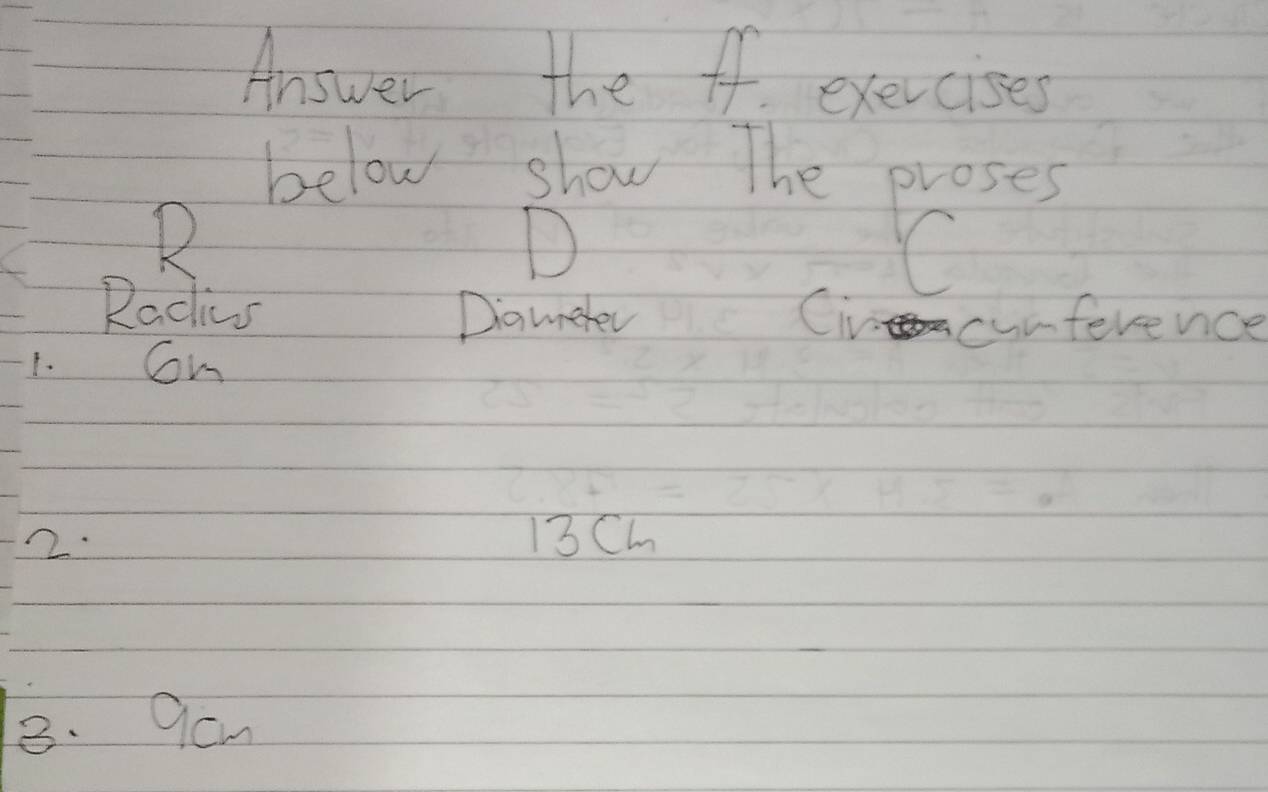 Answer the ff. exercises
below show The proses
R D C
Radius Diameter Circumference
1. 6m
2. 13 Cm
3. 9cm